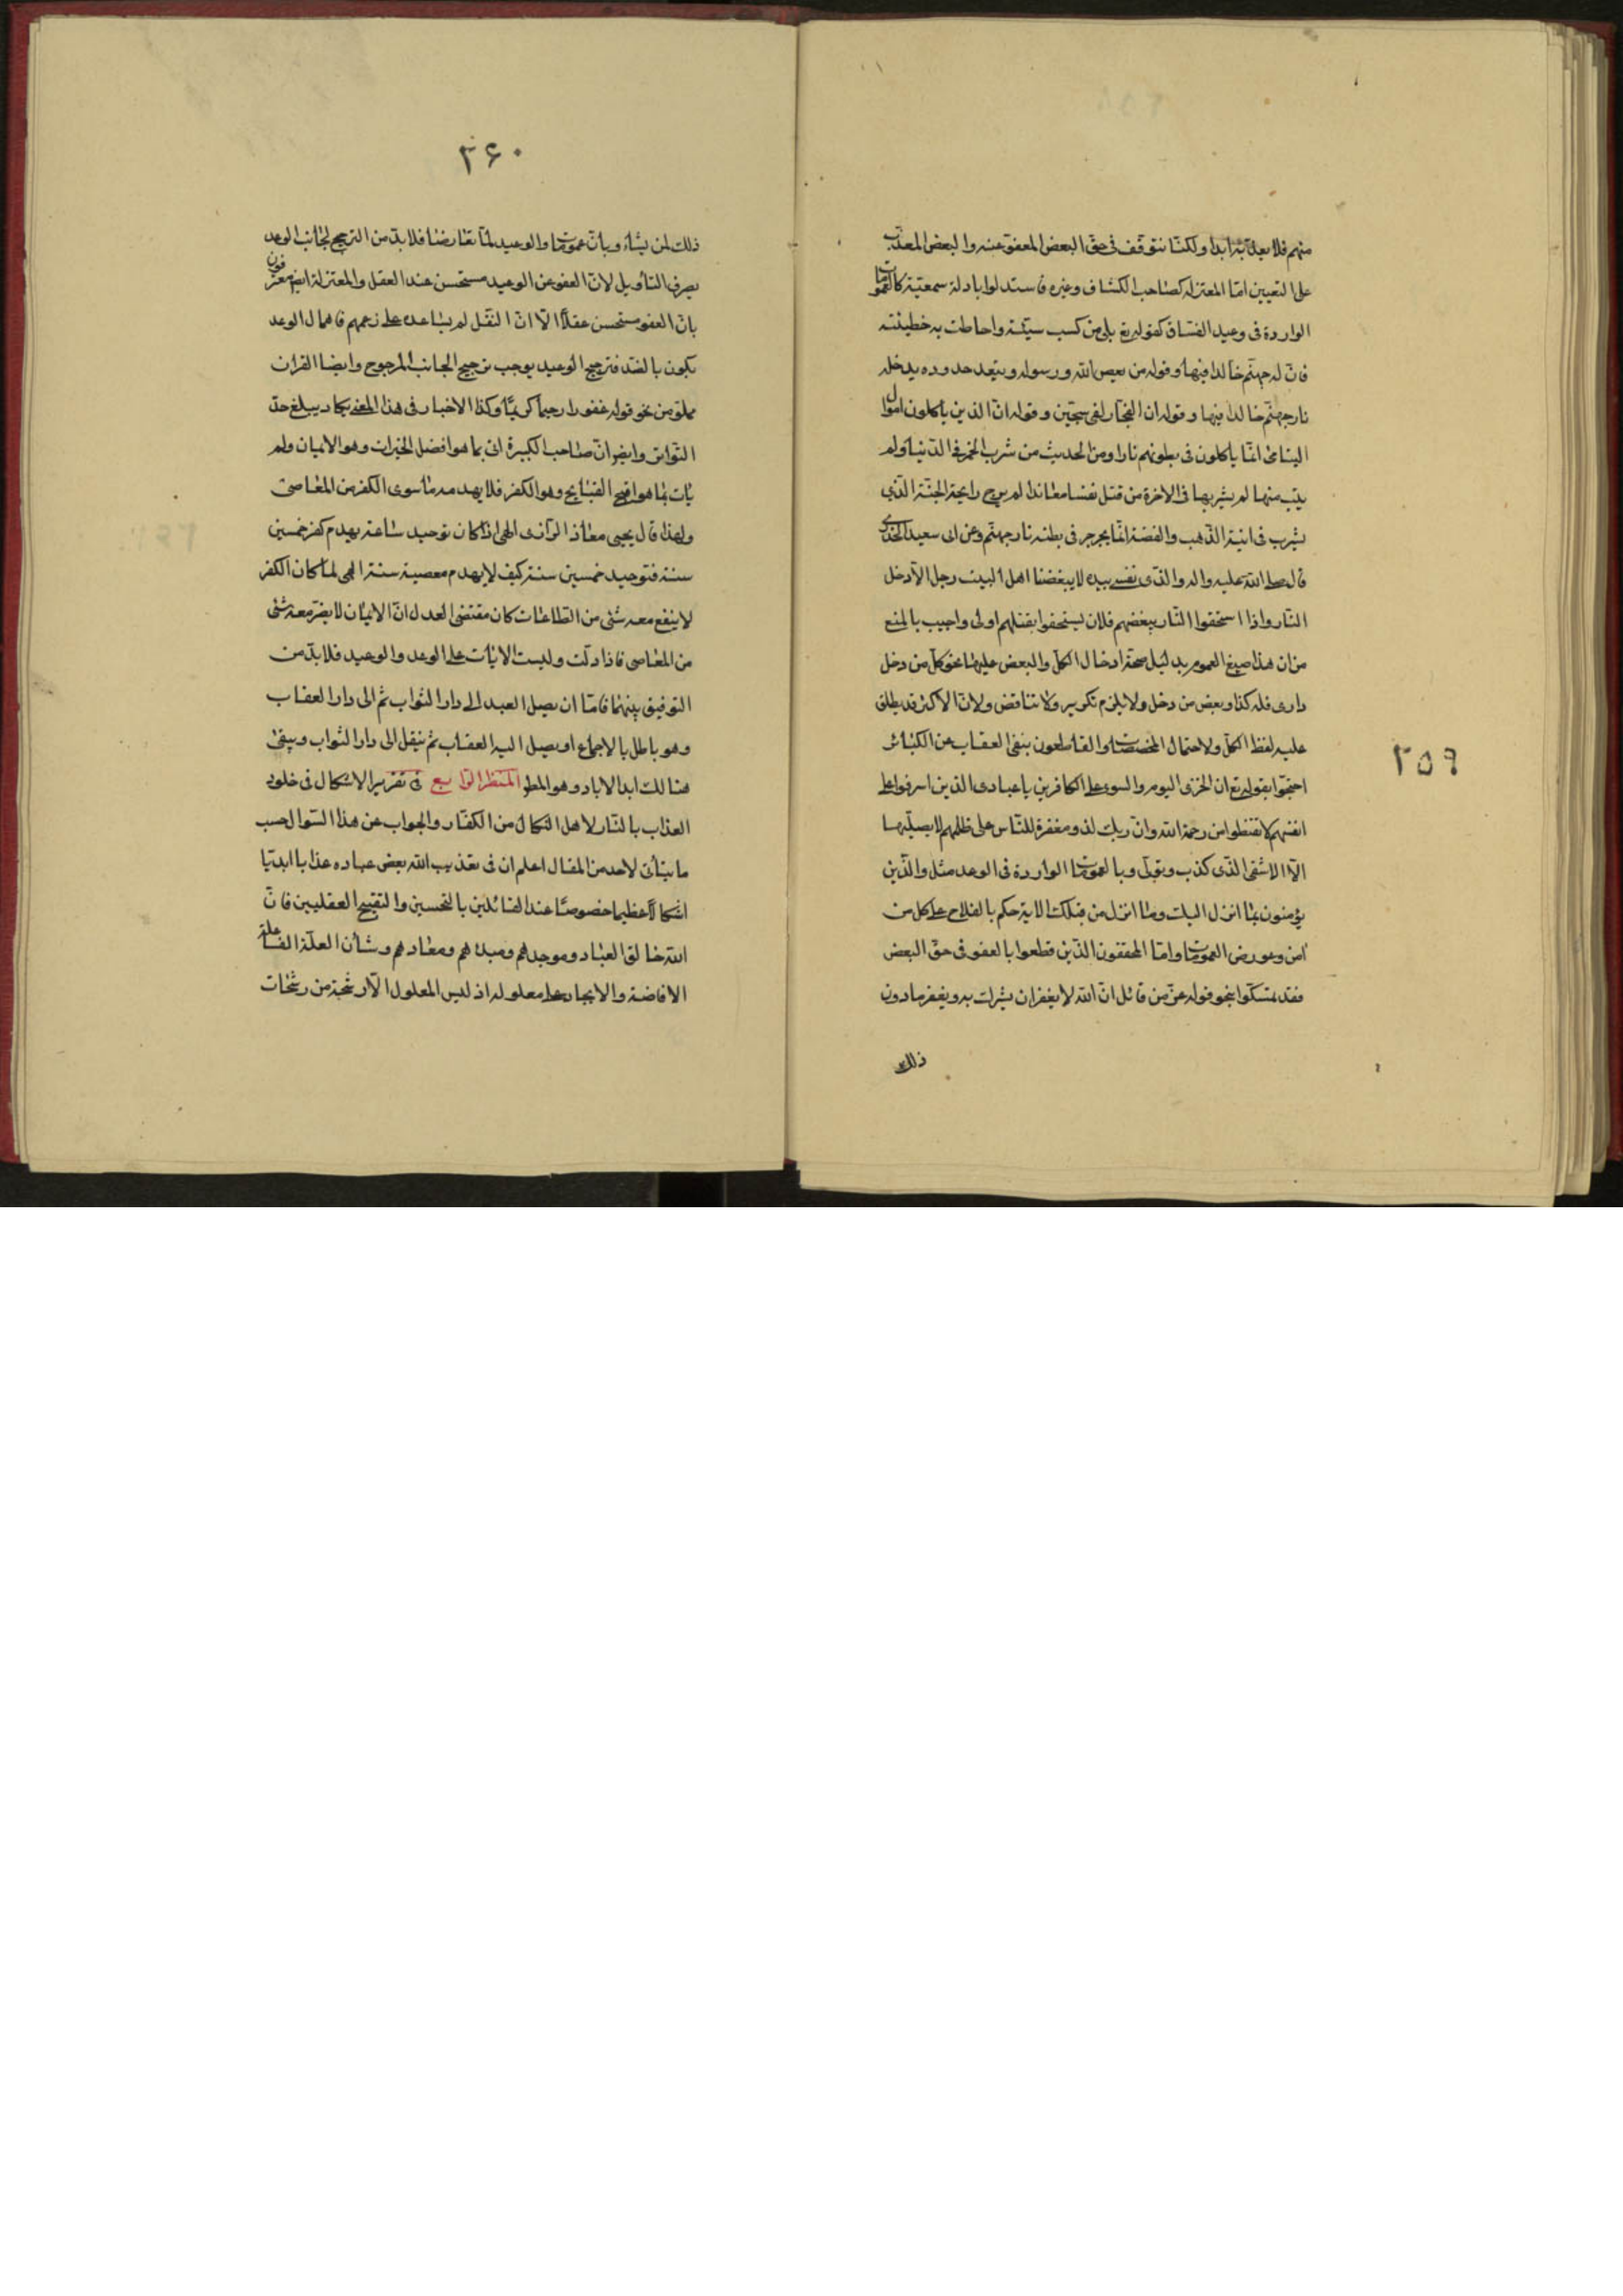 ٢٥٩
منهم فلا يعذّبه ابدا ولكنّا نتوقّف فى حقّ البعض المعفوّ عنه والبعض المعذّب
على التعيين امّا المعتزله كصاحب الكشاف وغيره فاستدلوا بادلة سمعيّة كالعمومات
الواردة فى وعيد الفسّاق كقوله تع بلى من كسب سيّئة واحاطت به خطيئته
فانّ له جهنّم خالدا فيها وقوله من يعص الله ورسوله ويتعد حدوده يدخله
نار جهنّم خالدا فيها وقوله ان الفجّار لفى سجّين وقوله انّ الذين ياكلون اموال
اليتامى انّما ياكلون فى بطونهم نارا ومن الحديث من شرب الخمر فى الدّنيا ولم
يتب منها لم يشربها فى الاخرة من قتل نفسا معاندا لم يرح رايحة الجنّة الذى
يشرب فى انية الذّهب والفضة انّما يجرجر فى بطنه نار جهنّم وعن ابى سعيد الخدرى
قال صلى الله عليه واله والذى نفسى بيده لا يبغضنا اهل البيت رجل الا دخل
النار واذا استحقوا النّار ببغضهم فلان يستحقوا بقتلهم اولى واجيب بالمنع
من ان هذا صيغ العموم بدليل صحّة ادخال الكلّ والبعض عليها نحو كلّ من دخل
دارى فله كذا وبعض من دخل ولا يلزم تكرير ولا تناقض ولانّ الاكثر قد يطلق
عليه لفظ الكلّ ولاحتمال المخصصات والقاطعون بنفى العقاب عن الكبائر
احتجّوا بقوله تع ان الخزى اليوم والسوء على الكافرين يا عبادى الذين اسرفوا على
انفسهم لا تقنطوا من رحمة الله وانّ ربك لذو مغفرة للنّاس على ظلمهم لا يصليها
الّا الاشقى الذى كذب وتولّى وبالعمومات الواردة فى الوعد مثل والذين
يؤمنون بما انزل اليك وما انزل من قبلك الاية حكم بالفلاح على كل من
امن وعورض العمومات وامّا المحققون الذين قطعوا بالعفو فى حقّ البعض
فقد تمسكوا بنحو قوله عزّ من قائل انّ الله لا يغفر ان يشرك به ويغفر ما دون
ذلك
٣۶٠
ذلك لمن يشاء وبانّ عمومات والوعيد لمّا تعارضا فلا بدّ من الترجيح لجانب الوعد
بصرف التأويل لانّ العفو عن الوعيد مستحسن عند العقل والمعتزلة ايض معترفون
بانّ العفو مستحسن عقلا الّا انّ النقل لم يساعده على زعمهم فاهمال الوعد
يكون بالضد فترجيح الوعيد يوجب ترجيح الجانب المرجوح وايضا القران
مملوّ من نحو قوله غفورا رحيما كريما وكذا الاخبار فى هذا المعنى يكاد يبلغ حدّ
التّواتر وايض انّ صاحب الكبيرة اتى بما هو افضل الخيرات وهو الايمان ولم
يأت بما هو اقبح القبايح وهو الكفر فلا يهدمه ما سوى الكفر من المعاصى
ولهذا قال يحيى معاذ الرازى الهى اذا كان توحيد ساعة يهدم كفر خمسين
سنة فتوحيد خمسين سنة كيف لا يهدم معصية سنة الهى لما كان الكفر
لا ينفع معه شئ من الطاعات كان مقتضى العدل انّ الايمان لا يضرّ معه شئ
من المعاصى فاذا دلّت وليست الايات على الوعد والوعيد فلا بدّ من
التوفيق بينهما فامّا ان يصل العبد الى دار الثواب ثم الى دار العقاب
وهو باطل بالاجماع او يصل اليه العقاب ثم ينقل الى دار الثواب ويبقى
هنالك ابد الاباد وهو المطلو المنظر الرّابع فى تقرير الاشكال فى خلود
العذاب بالنار لاهل النكال من الكفّار والجواب عن هذا السّؤال حسب
ما يتأتى لاحد من المقال اعلم ان فى تعذيب الله بعض عباده عذابا ابديّا
اشكالا عظيما خصوصا عند القائلين بالتحسين والتقبيح العقليين فانّ
الله خالق العباد وموجدهم ومبدئهم ومعادهم وشأن العلّة الفاعلة
الافاضة والايجاد على معلوله اذ ليس المعلول الّا رشحة من رشحات